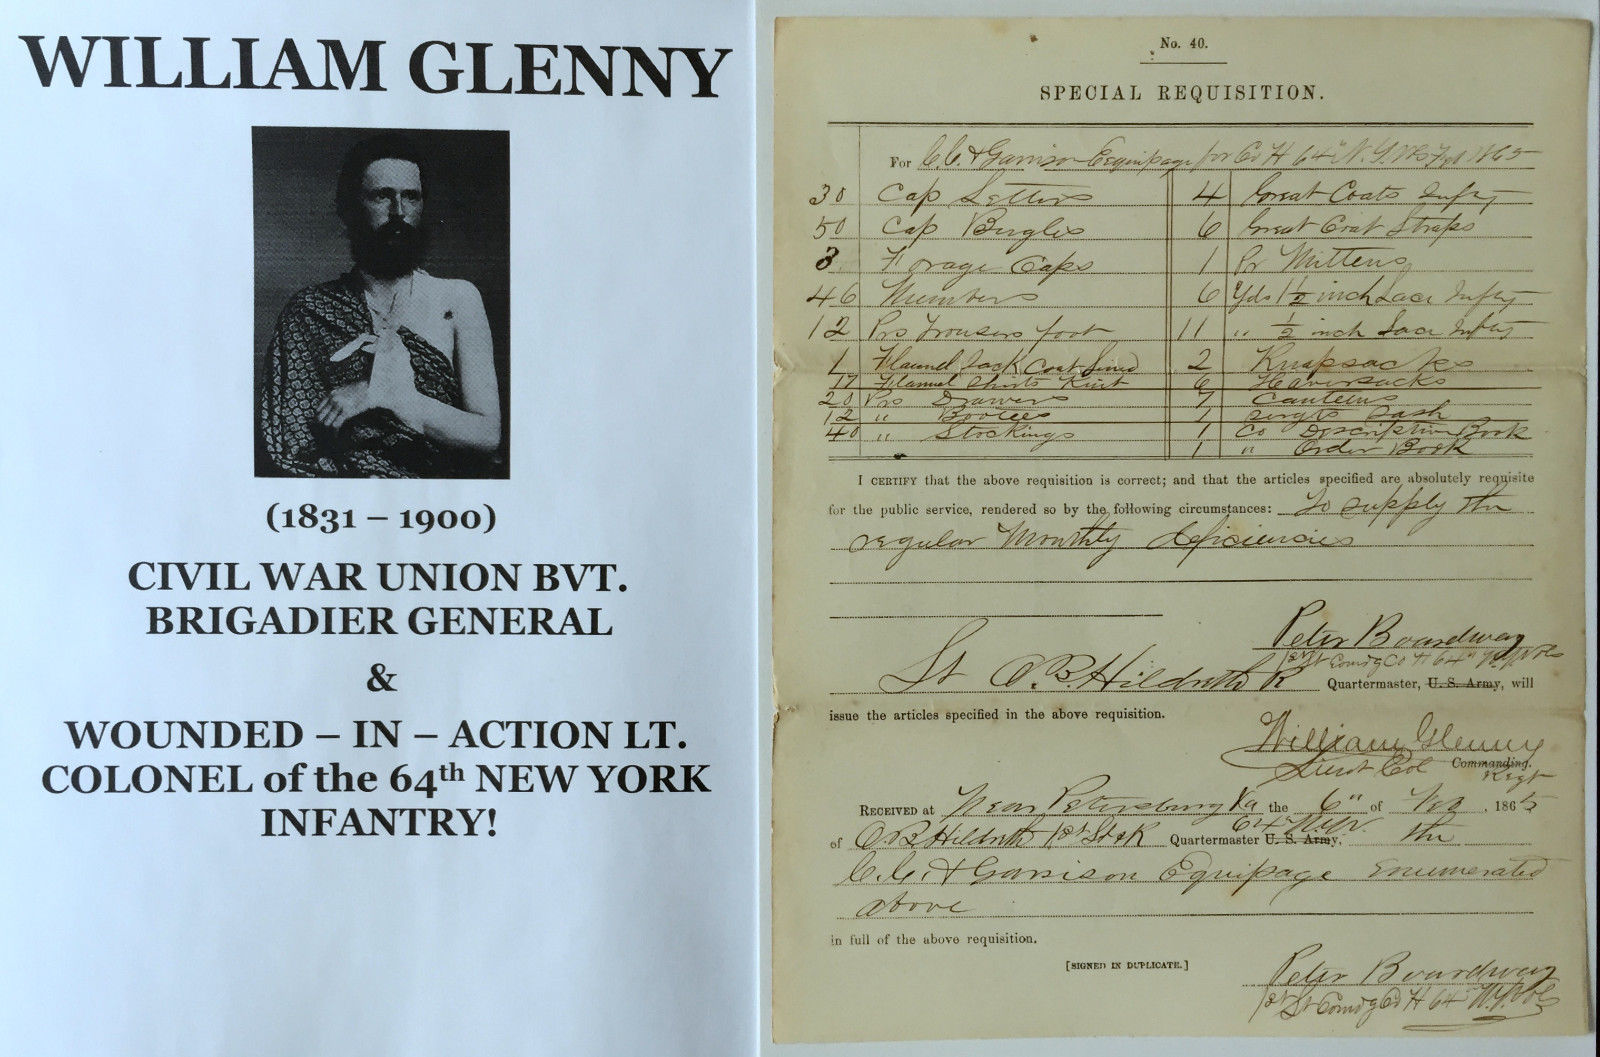 WILLIAM GLENNY
(1831 – 1900)
CIVIL WAR UNION BVT.
BRIGADIER GENERAL
&
WOUNDED – IN – ACTION LT.
COLONEL of the 64th NEW YORK
INFANTRY!
No. 40.
SPECIAL REQUISITION.
For C.C. & Garrison Equipage for Co H 64" N.Y. Vols Feb 1865
30 Cap Letters 4 Great Coats Infty
50 Cap Bugles 6 Great Coat Straps
3 Forage Caps 1 Pr Mittens
46 Numbers 6 Yds 1 1/2 inch Lace Infty
12 Prs Trousers foot 11 " 1/2 inch Lace Infty
1 Flannel Sack Coat Lined 2 Knapsacks
17 Flannel Shirts Knit 6 Haversacks
20 Prs Drawers 7 Canteens
12 " Bootees 1 Sergts Sash
40 " Stockings 1 Co Descriptive Book
1 " Order Book
I CERTIFY that the above requisition is correct; and that the articles specified are absolutely requisite
for the public service, rendered so by the following circumstances: To supply the
regular Monthly deficiencies
Peter Boardway
1st Lt Comdg Co H 64" N.Y. Vols
Lt O.B. Hildreth R Quartermaster, U. S. Army, will
issue the articles specified in the above requisition.
William Glenny
Lieut Col Commanding.
Regt
RECEIVED at Near Petersburg Va the 6" of Feb, 1865
of O.B. Hildreth 1st Lt & R Quartermaster U. S. Army, 64" N.Y.V. the
C.C. & Garrison Equipage Enumerated
above
in full of the above requisition.
[SIGNED IN DUPLICATE.]
Peter Boardway
1st Lt Comdg Co H 64" N.Y. Vols